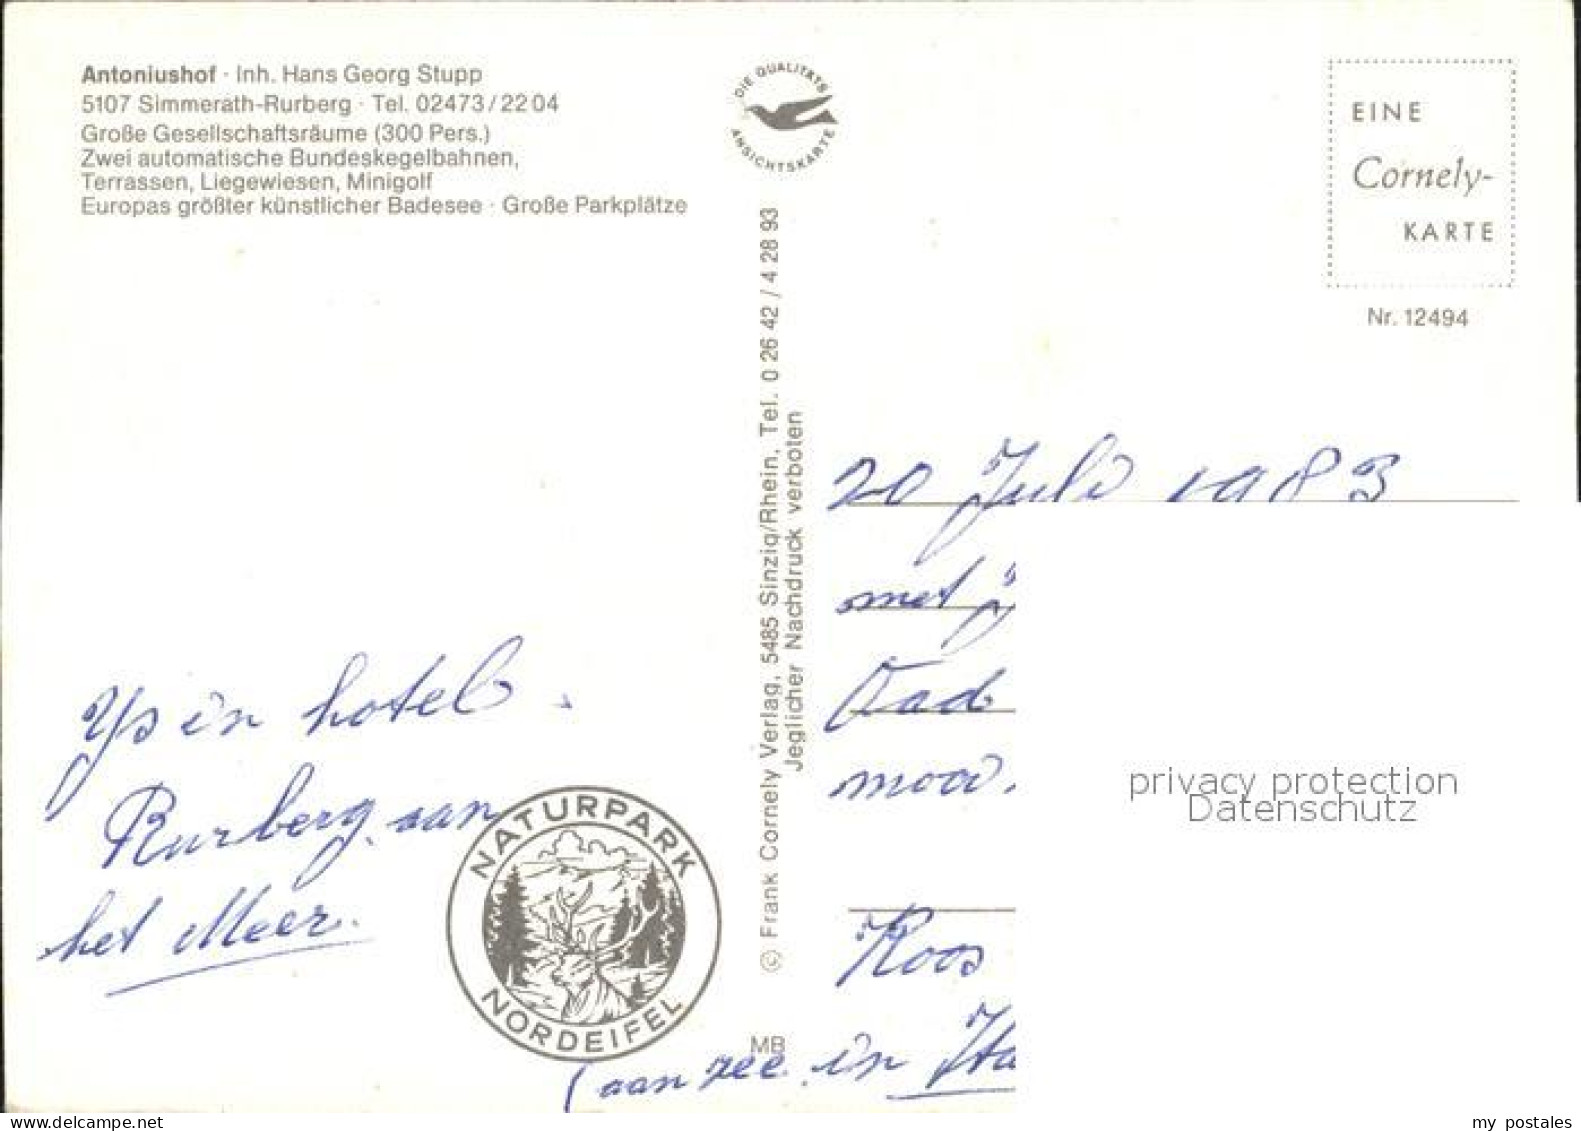 Antoniushof · Inh. Hans Georg Stupp
5107 Simmerath-Rurberg · Tel. 02473/2204
Große Gesellschaftsräume (300 Pers.)
Zwei automatische Bundeskegelbahnen,
Terrassen, Liegewiesen, Minigolf
Europas größter künstlicher Badesee · Große Parkplätze
DIE QUALITÄTS
ANSICHTSKARTE
EINE
Cornely-
KARTE
Nr. 12494
© Frank Cornely Verlag, 5485 Sinzig/Rhein, Tel. 0 26 42 / 4 28 93
Jeglicher Nachdruck verboten
20 Juli 1983
met
mooi
Koos
in hotel
Rurberg aan
het Meer.
NATURPARK
NORDEIFEL
MB
(aan zee in Ita
privacy protection
Datenschutz
www.delcampe.net
my postales